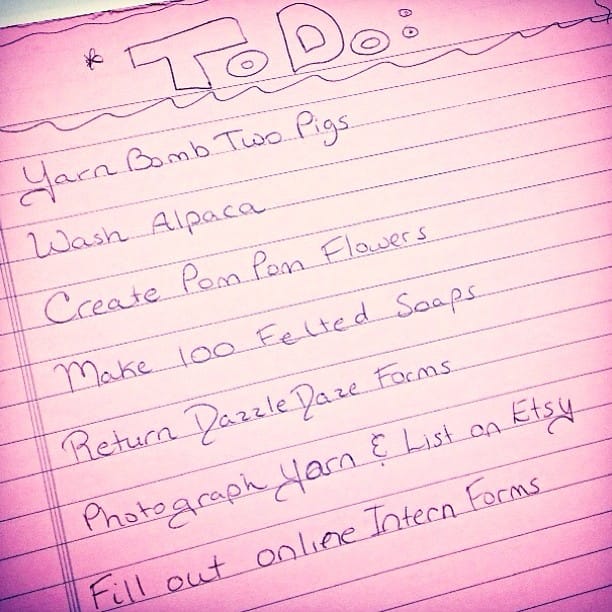 * To Do:
Yarn Bomb Two Pigs
Wash Alpaca
Create Pom Pom Flowers
Make 100 Felted Soaps
Return Dazzle Daze Forms
Photograph Yarn & List on Etsy
Fill out online Intern Forms